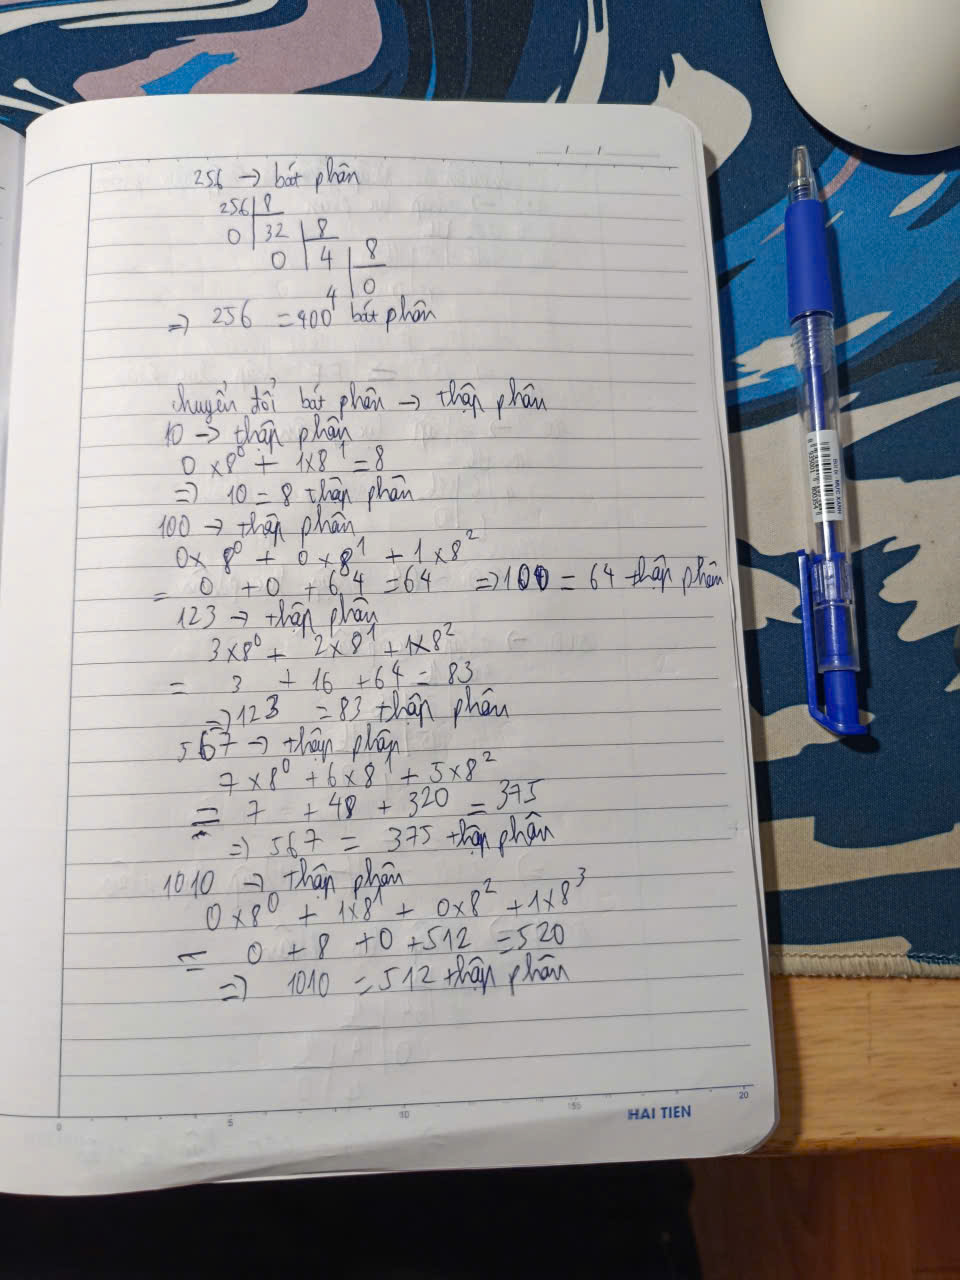 256 → bát phân
256 8
0 32 8
0 4 8
4 0
=> 256 = 400 bát phân
chuyển đổi bát phân → thập phân
10 → thập phân
0 x 8⁰ + 1x8¹ = 8
=> 10 = 8 thập phân
100 → thập phân
0 x 8⁰ + 0 x 8¹ + 1 x 8²
= 0 + 0 + 64 = 64 => 100 = 64 thập phân
123 → thập phân
3 x 8⁰ + 2 x 8¹ + 1x8²
= 3 + 16 + 64 = 83
=> 123 = 83 thập phân
567 → thập phân
7 x 8⁰ + 6 x 8¹ + 5 x 8²
= 7 + 48 + 320 = 375
=> 567 = 375 thập phân
1010 → thập phân
0 x 8⁰ + 1x8¹ + 0x8² + 1x8³
= 0 + 8 + 0 + 512 = 520
=> 1010 = 512 thập phân
0 5 10 15 20
HAI TIEN